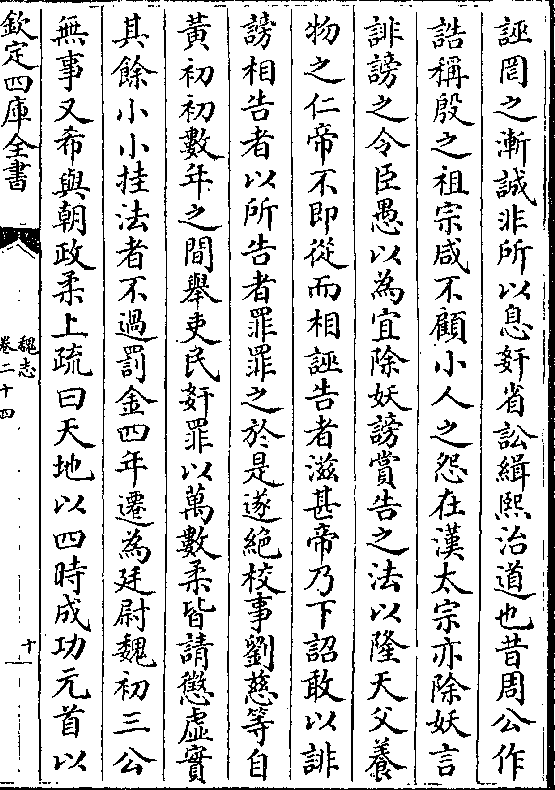 誣罔之漸誠非所以息姧省訟緝熙治道也昔周公作
誥稱殷之祖宗咸不顧小人之怨在漢太宗亦除妖言
誹謗之令臣愚以為宜除妖謗賞告之法以隆天父養
物之仁帝不即從而相誣告者滋甚帝乃下詔敢以誹
謗相告者以所告者罪罪之於是遂絶校事劉慈等自
黃初初數年之間舉吏民姧罪以萬數柔皆請懲虛實
其餘小小挂法者不過罰金四年遷為廷尉魏初三公
無事又希與朝政柔上疏曰天地以四時成功元首以
欽定四庫全書
魏志
卷二十四
十